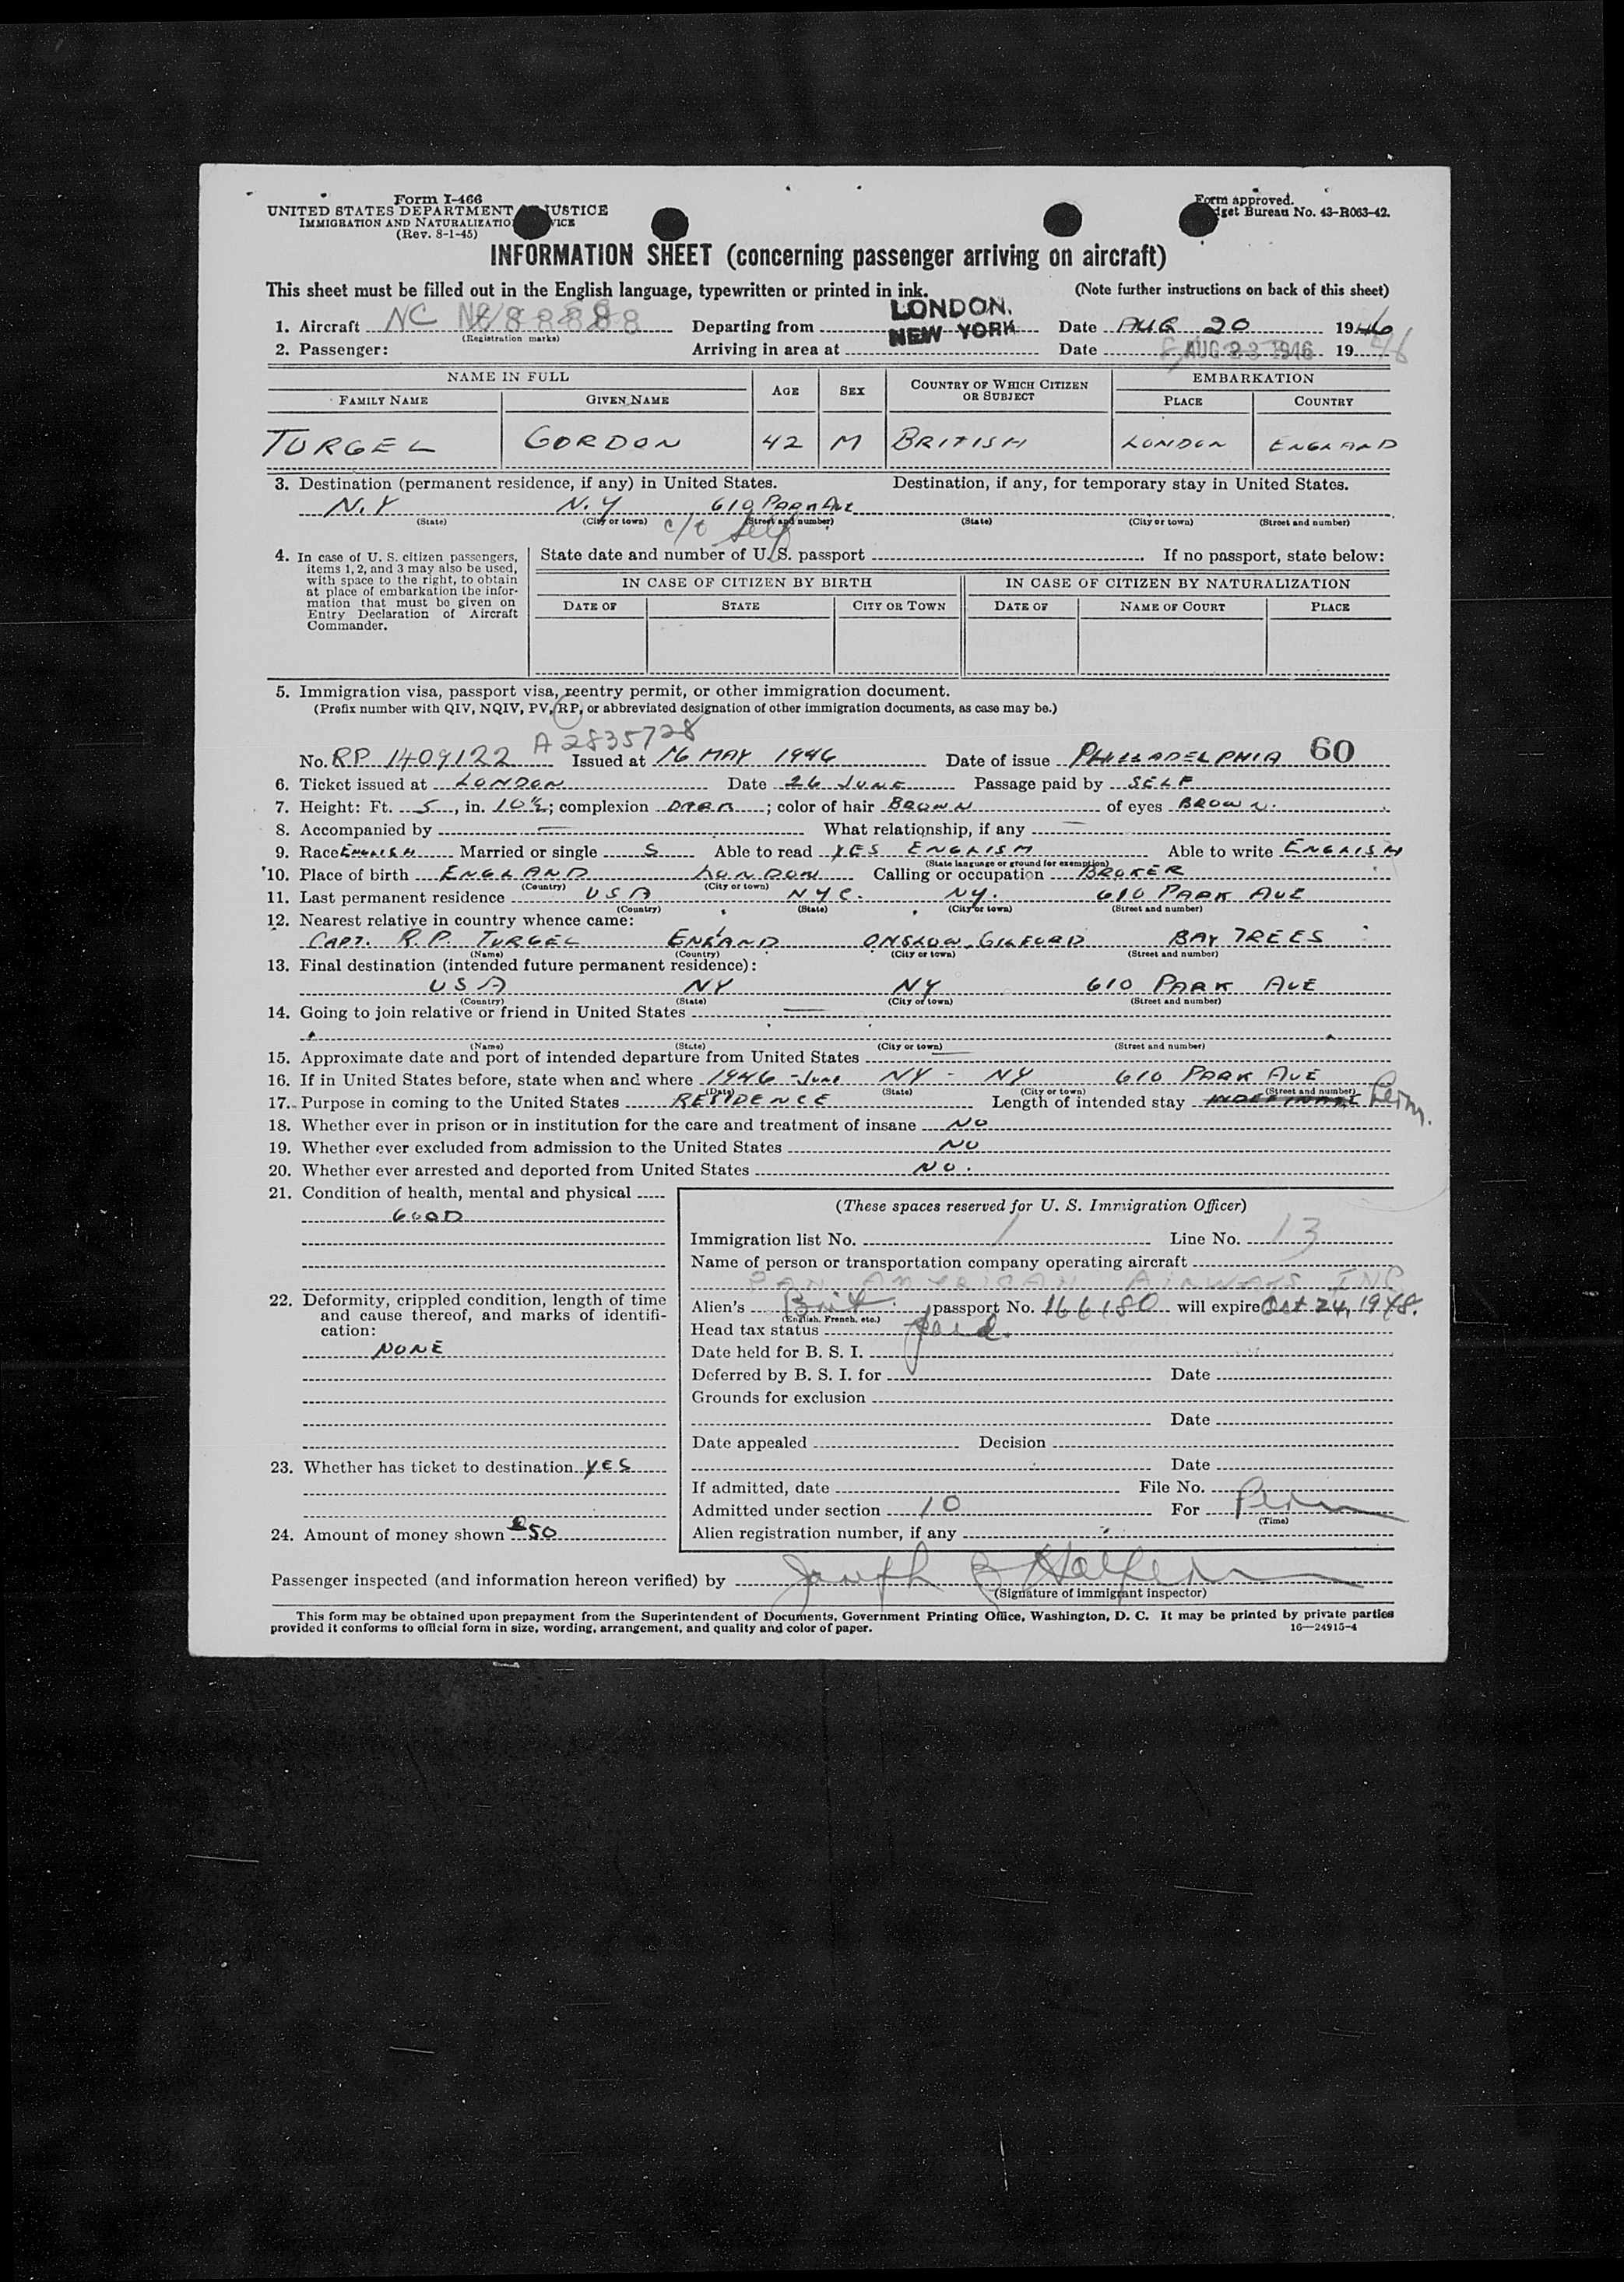 Form I-466
UNITED STATES DEPARTMENT JUSTICE
IMMIGRATION AND NATURALIZATIO VICE
(Rev. 8-1-45)
Form approved.
dget Bureau No. 43-R063-42.
INFORMATION SHEET (concerning passenger arriving on aircraft)
This sheet must be filled out in the English language, typewritten or printed in ink.
(Note further instructions on back of this sheet)
1. Aircraft NC 88888 Departing from LONDON. Date AUG 20 1946
(Registration marks)
2. Passenger: Arriving in area at NEW YORK Date AUG 23 1946 19 46
NAME IN FULL AGE SEX COUNTRY OF WHICH CITIZEN OR SUBJECT EMBARKATION
FAMILY NAME GIVEN NAME PLACE COUNTRY
TURGEL GORDON 42 M BRITISH LONDON ENGLAND
3. Destination (permanent residence, if any) in United States. Destination, if any, for temporary stay in United States.
N.Y N.Y 610 PARK AVE
(State) (City or town) (Street and number) (State) (City or town) (Street and number)
c/o Self
4. In case of U. S. citizen passengers, items 1, 2, and 3 may also be used, with space to the right, to obtain at place of embarkation the information that must be given on Entry Declaration of Aircraft Commander.
State date and number of U. S. passport If no passport, state below:
IN CASE OF CITIZEN BY BIRTH IN CASE OF CITIZEN BY NATURALIZATION
DATE OF STATE CITY OR TOWN DATE OF NAME OF COURT PLACE
5. Immigration visa, passport visa, reentry permit, or other immigration document.
(Prefix number with QIV, NQIV, PV, RP, or abbreviated designation of other immigration documents, as case may be.)
A2835728
No. RP 1409122 Issued at 16 MAY 1946 Date of issue PHILLADELPHIA 60
6. Ticket issued at LONDON Date 26 JUNE Passage paid by SELF
7. Height: Ft. 5, in. 10½; complexion DARK; color of hair BROWN of eyes BROWN.
8. Accompanied by — What relationship, if any —
9. Race ENGLISH Married or single S Able to read YES ENGLISH Able to write ENGLISH
(State language or ground for exemption)
10. Place of birth ENGLAND LONDON Calling or occupation BROKER
(Country) (City or town)
11. Last permanent residence USA NYC. NY. 610 PARK AVE
(Country) (State) (City or town) (Street and number)
12. Nearest relative in country whence came:
CAPT. R.P. TURGEL ENLAND ONSLOW, GILFORD BAY TREES
(Name) (Country) (City or town) (Street and number)
13. Final destination (intended future permanent residence):
USA NY NY 610 PARK AVE
(Country) (State) (City or town) (Street and number)
14. Going to join relative or friend in United States —
(Name) (State) (City or town) (Street and number)
15. Approximate date and port of intended departure from United States —
16. If in United States before, state when and where 1946 - June NY - NY 610 PARK AVE
(Date) (State) (City or town) (Street and number)
17. Purpose in coming to the United States RESIDENCE Length of intended stay Perm.
18. Whether ever in prison or in institution for the care and treatment of insane NO
19. Whether ever excluded from admission to the United States NO
20. Whether ever arrested and deported from United States NO.
21. Condition of health, mental and physical
GOOD
22. Deformity, crippled condition, length of time and cause thereof, and marks of identification:
NONE
23. Whether has ticket to destination YES
24. Amount of money shown £50
(These spaces reserved for U. S. Immigration Officer)
Immigration list No. 1 Line No. 13
Name of person or transportation company operating aircraft
PAN AMERICAN AIRWAYS INC
Alien's Brit. passport No. 166180 will expire Oct 24, 1948.
(English, French, etc.)
Head tax status paid.
Date held for B. S. I.
Deferred by B. S. I. for Date
Grounds for exclusion
Date
Date appealed Decision
Date
If admitted, date File No.
Admitted under section 10 For Perm
(Time)
Alien registration number, if any
Passenger inspected (and information hereon verified) by Joseph Halpern
(Signature of immigrant inspector)
This form may be obtained upon prepayment from the Superintendent of Documents, Government Printing Office, Washington, D. C. It may be printed by private parties
provided it conforms to official form in size, wording, arrangement, and quality and color of paper. 16—24915-4